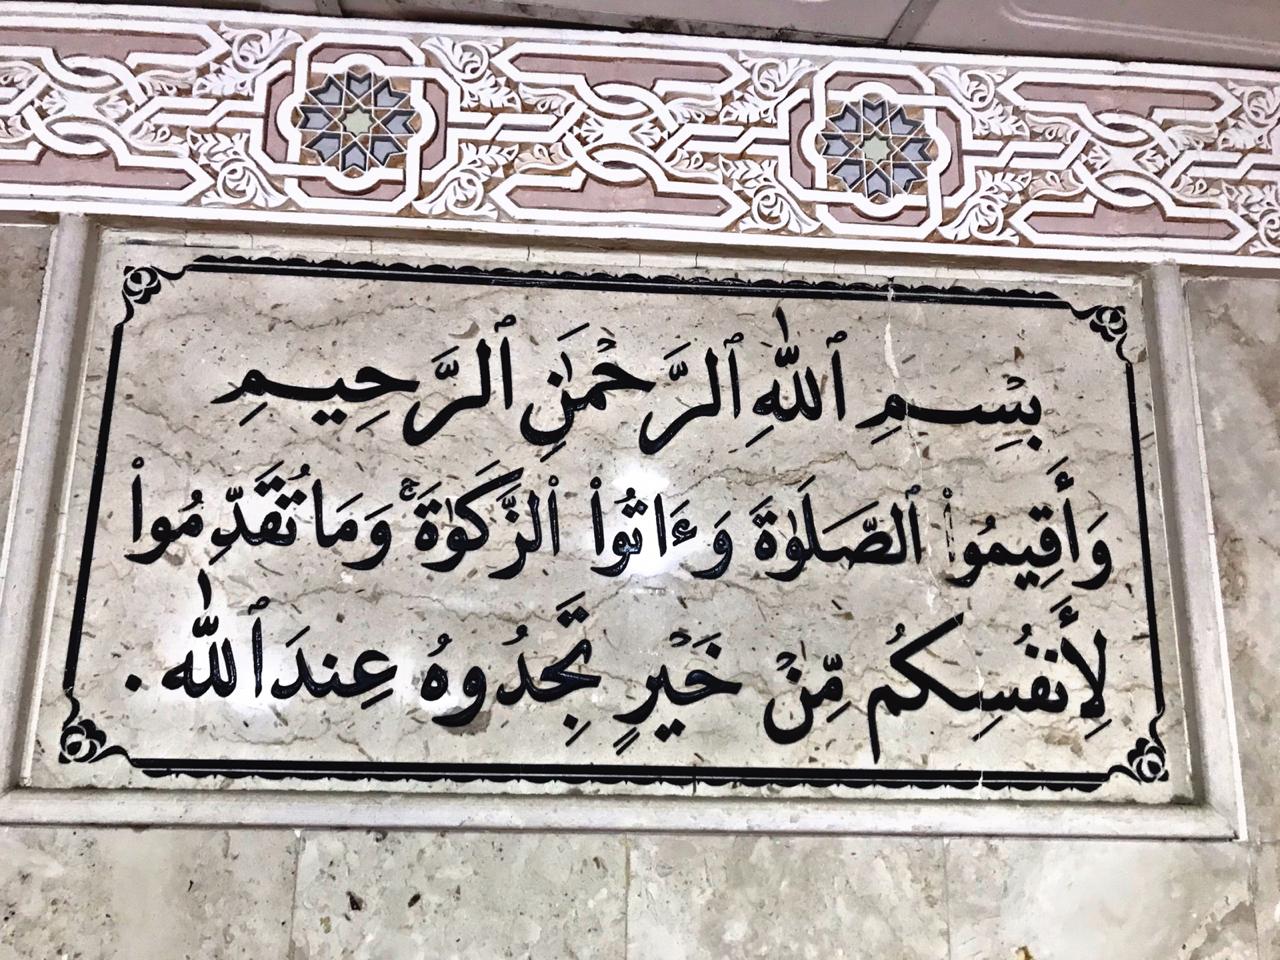 بِسْمِ ٱللَّهِ ٱلرَّحْمَٰنِ ٱلرَّحِيمِ
وَأَقِيمُوا۟ ٱلصَّلَوٰةَ وَءَاتُوا۟ ٱلزَّكَوٰةَ ۚ وَمَا تُقَدِّمُوا۟
لِأَنفُسِكُم مِّنْ خَيْرٍ تَجِدُوهُ عِندَ ٱللَّه .